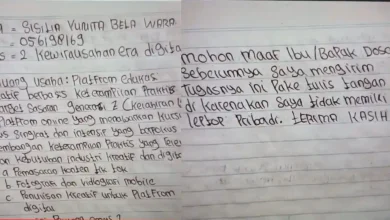 = SISILIA YUNITA BELA WARA
= 056198169
= 2 Kewirausahan era digital
uang Usaha: Platfrom Edukasi
berbasis keterampilan Praktis
Sasaran generasi Z (Kelahiran
Platfrom online yang menawarkan kursus
Singkat dan intensif yang berfokus
keterampilan Praktis yang
kebutuhan industri kreatif dan digital
a Pemasaran konten tik tok
b Fotografi dan vidiografi mobile
c Penulisan kreatif untuk Platfrom
digital
mohon maaf Ibu/Bapak Dosen
Sebelumnya Saya mengirim
Tugasnya ini Pake tulis tangan
di karenakan Saya tidak memiliki
leptop Pribadi. TERIMA KASIH